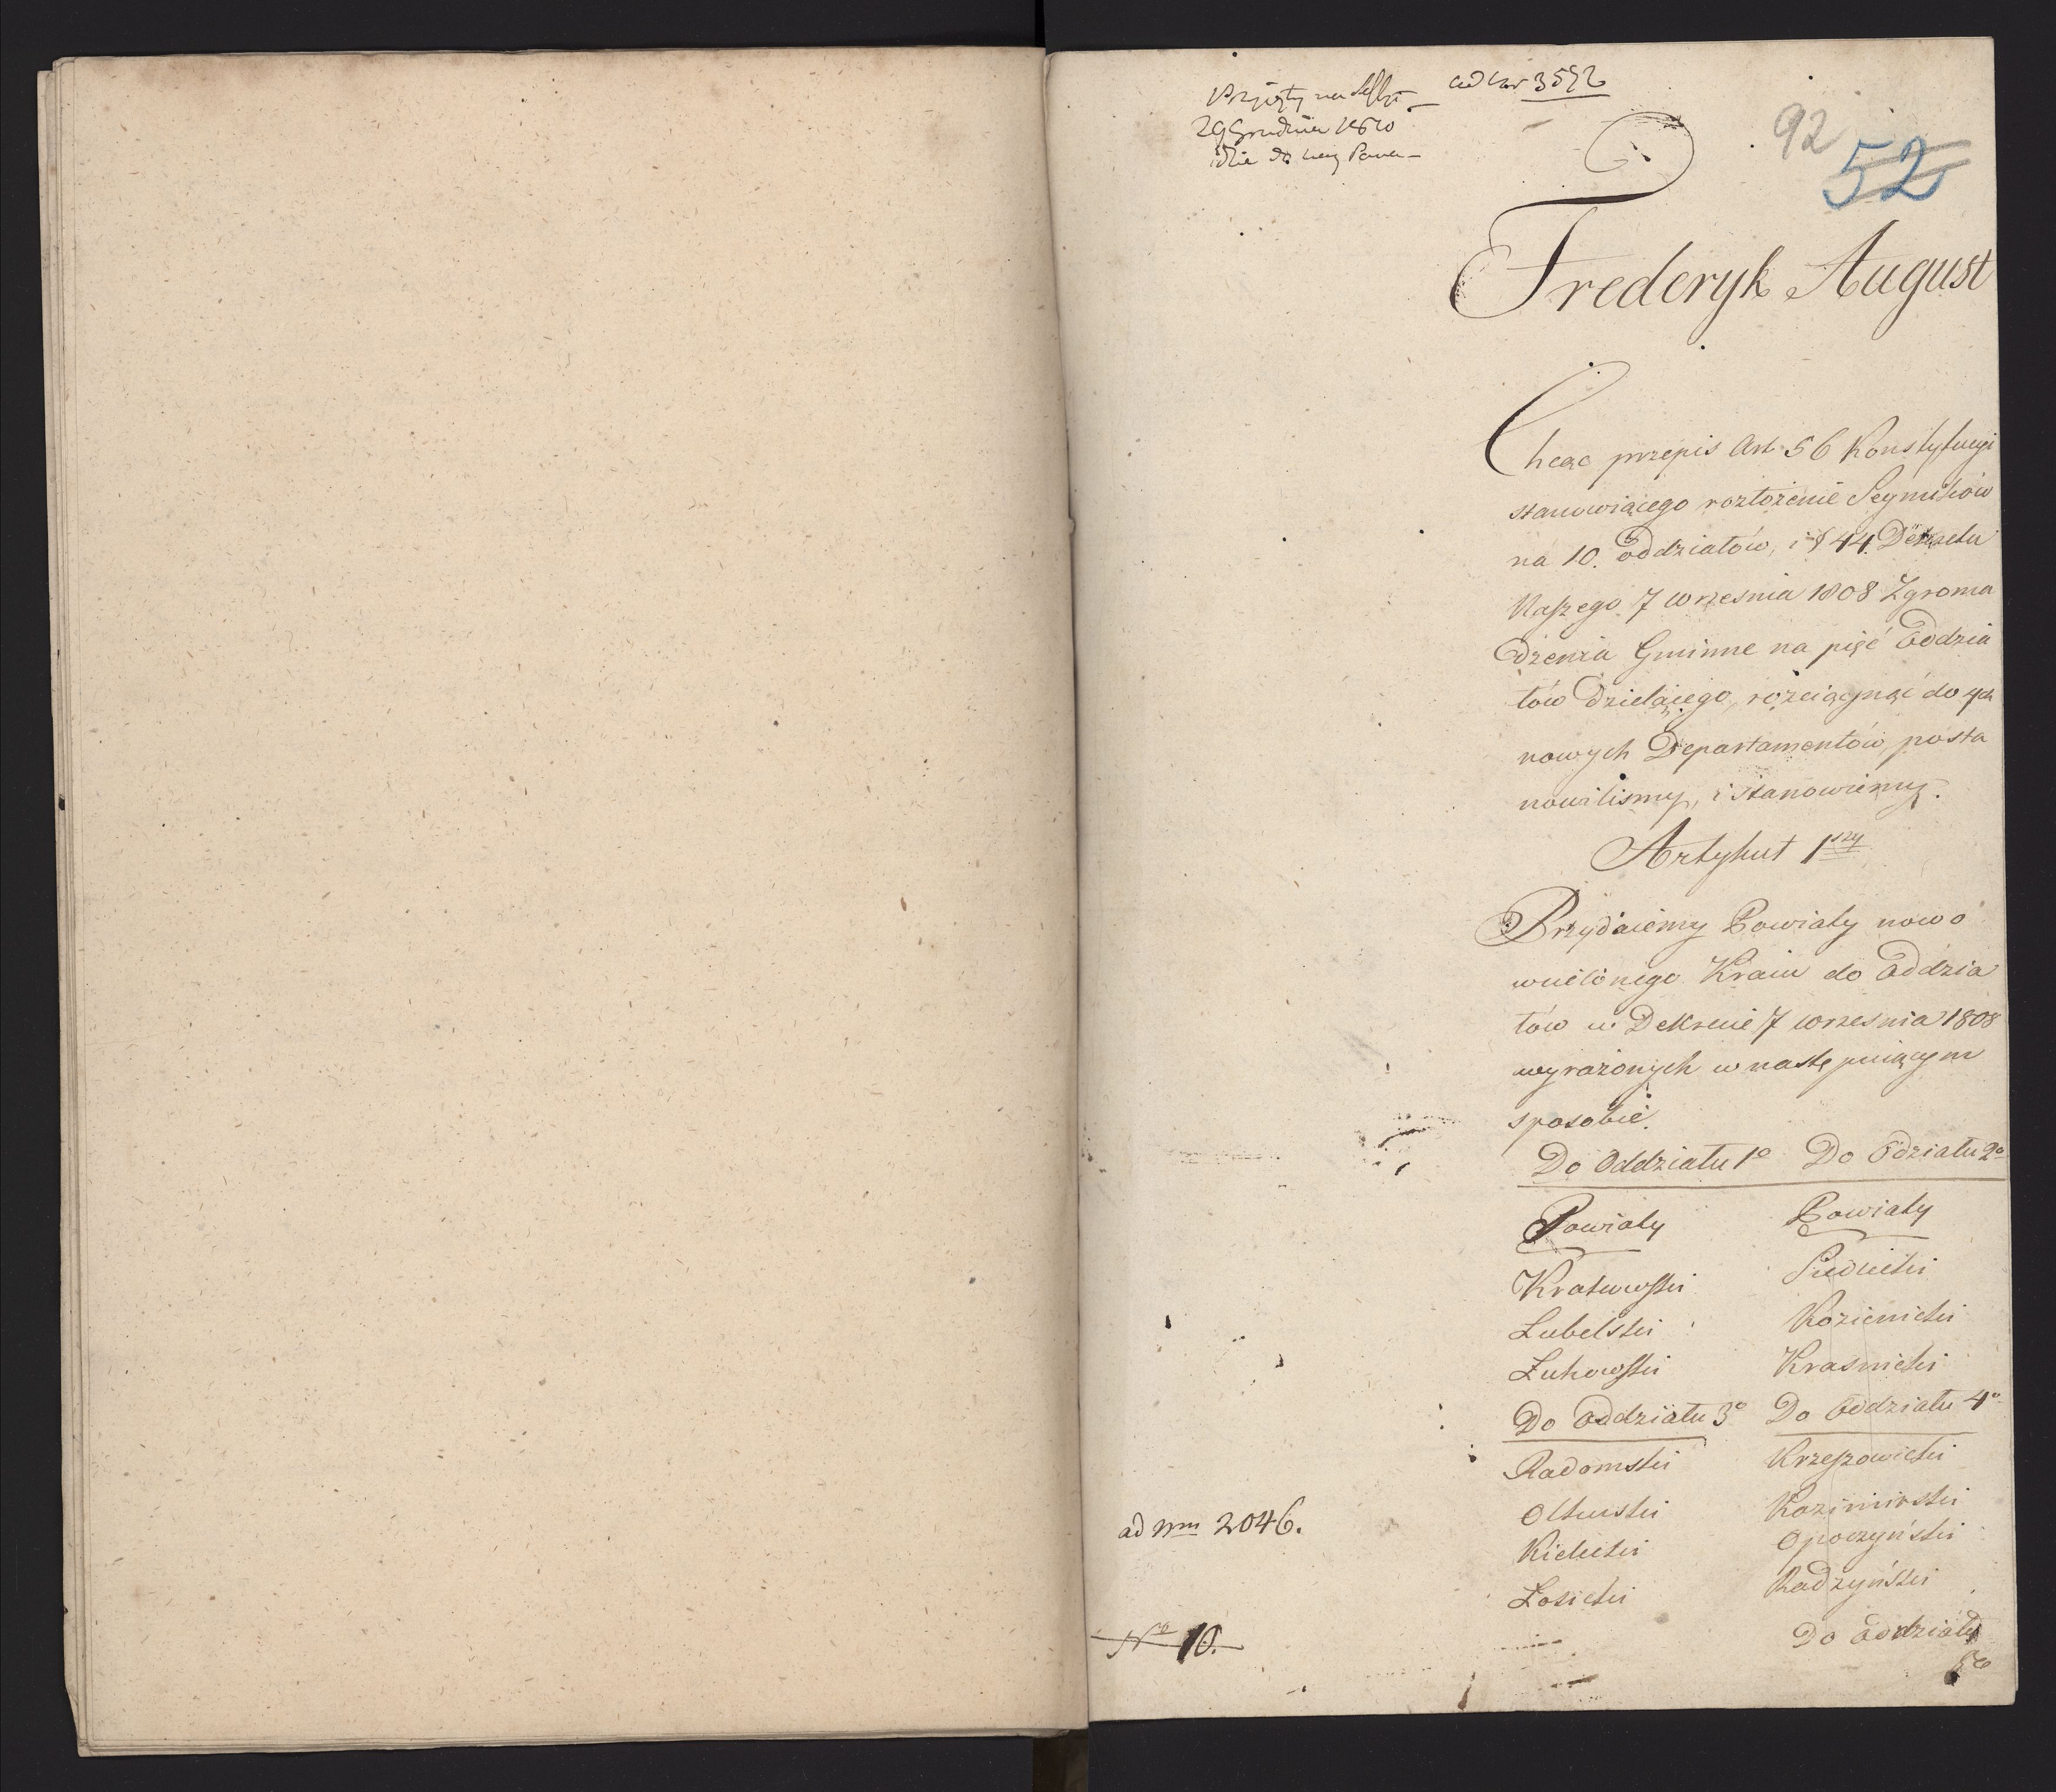 Przyięty na Sessyi
ad Nr 3592
29 Grudnia 1810
idzie do Nay Pana
92
52
Frederyk August
Chcąc przepis Art. 56 Konstytucyi
stanowiącego rozłożenie Seymików
na 10. Oddziałów, i § 44. Dekretu
Naszego 7 Września 1808 Zgroma
dzenia Gminne na pięć Oddzia
łów dzielącego, rozciągnąć do 4ch
nowych Departamentów, posta
nowiliśmy, i stanowiemy.
Artykuł 1szy
Przydaiemy Powiaty nowo
wcielonego Kraiu do Oddzia
łów w Dekrecie 7 Września 1808
wyrażonych w następuiącym
sposobie.
Do Oddziału 1o Do Odziału 2o
Powiaty Powiaty
Krakowski Siedlecki
Lubelski Kozienicki
Łukowski Krasnicki
Do Oddziału 3o Do Oddziału 4o
Radomski Krzeszowicki
Olkuski Kazimirski
Kielecki Opoczyński
Łosicki Radzyński
ad Nrm 2046.
Do Oddziału
5o
No 10.